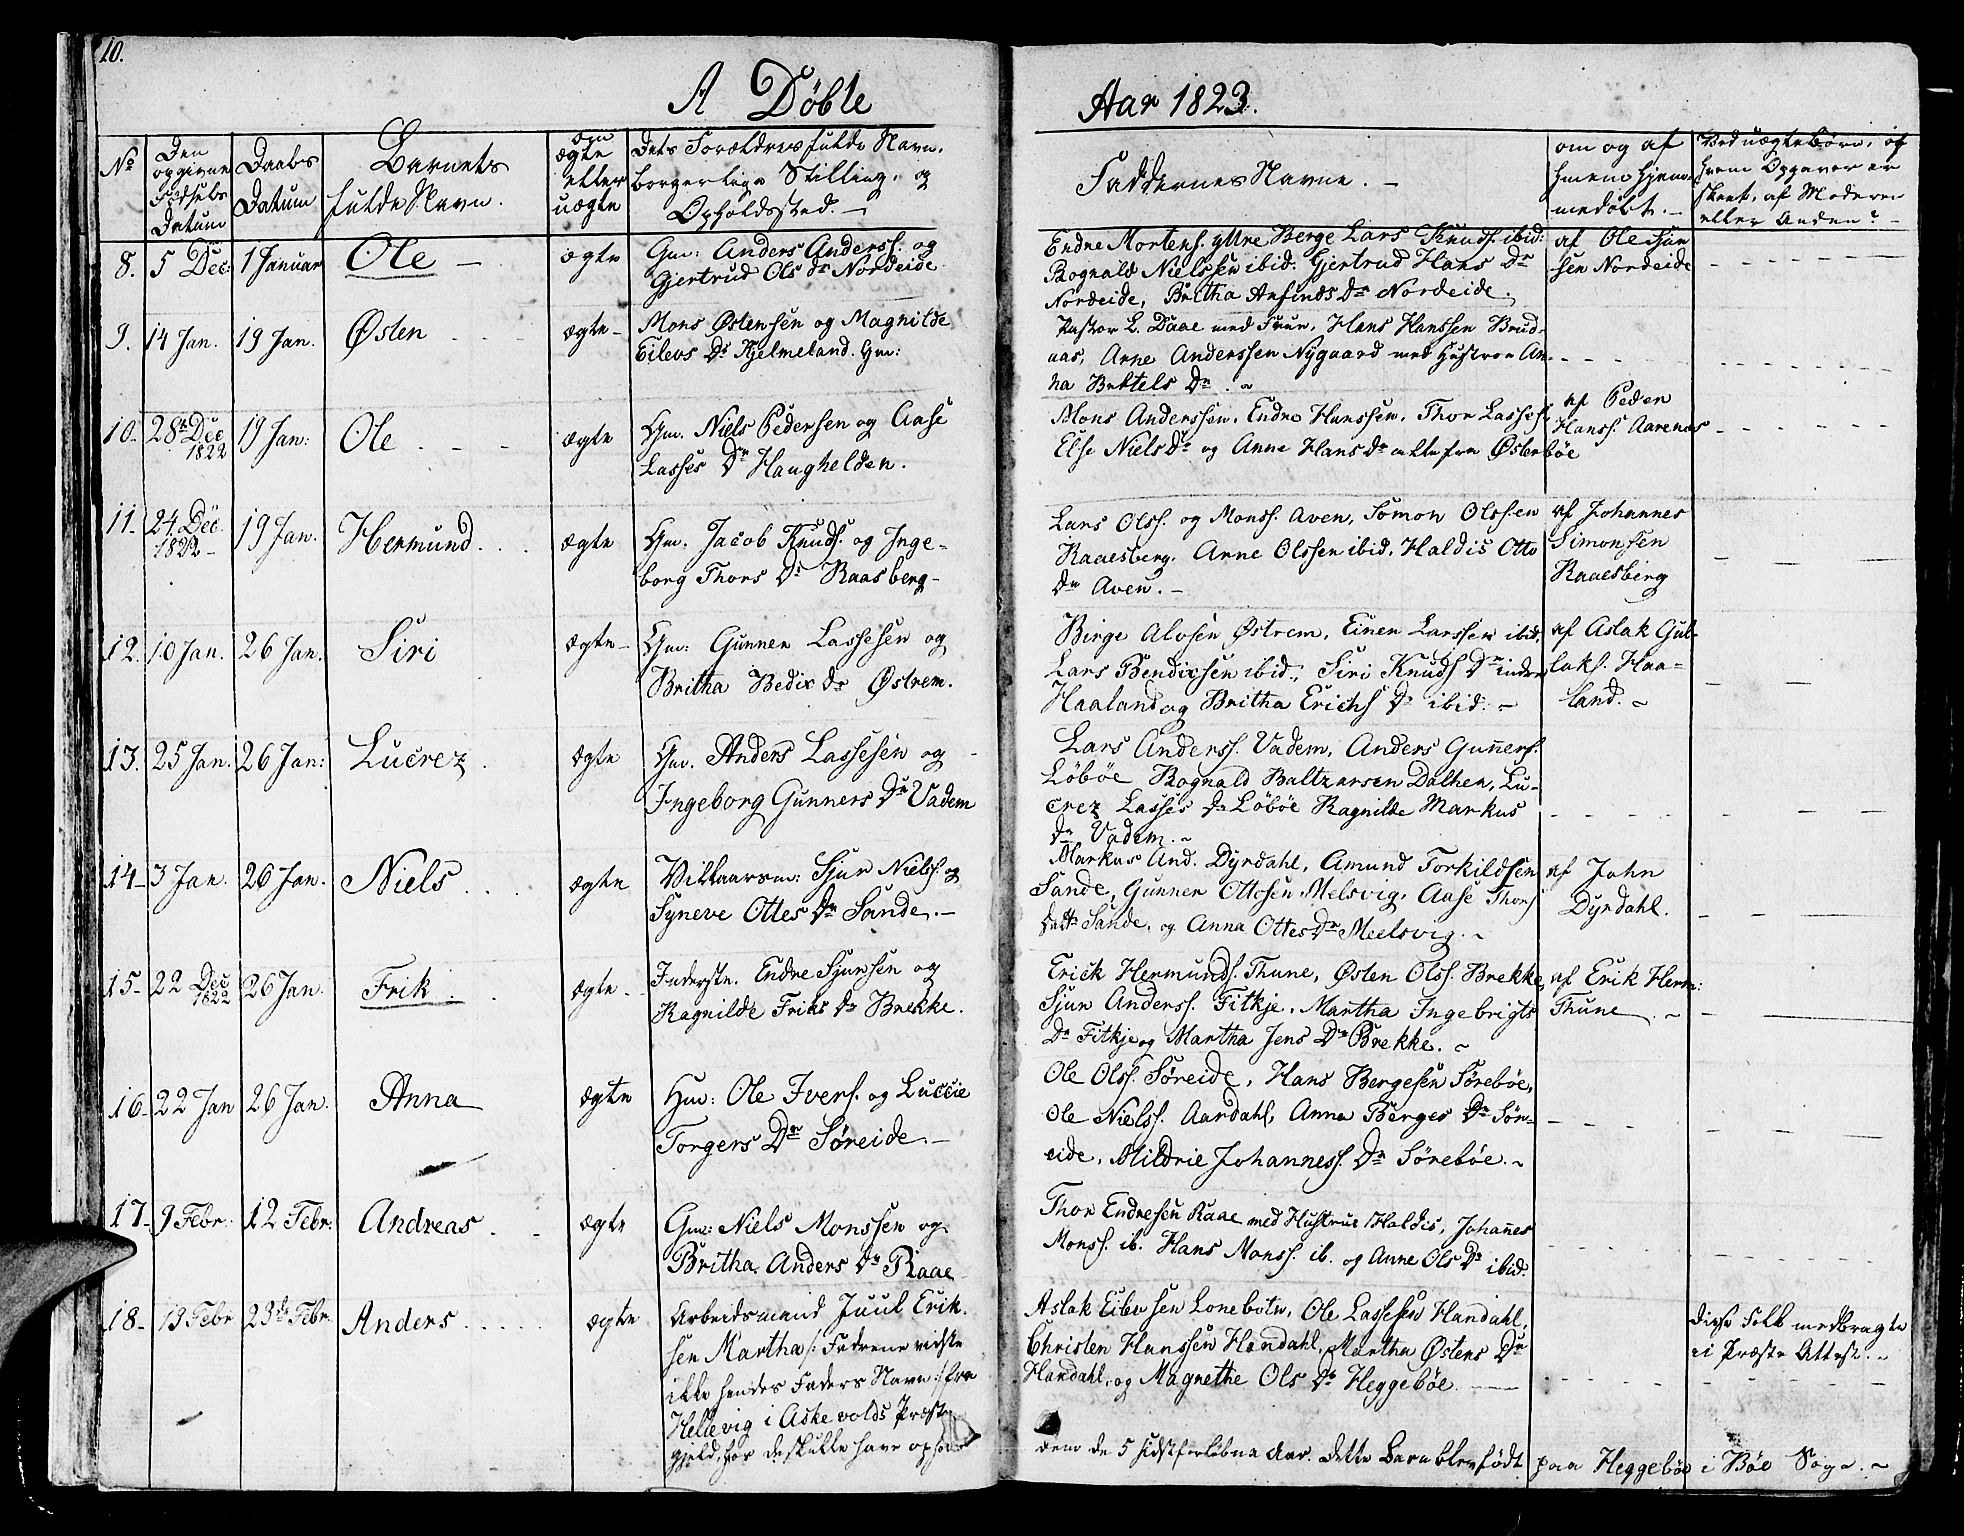 10.
A Döbte
Aar 1823.
No
Den opgivne Fødsels Datum
Daabs Datum
Barnets fulde Navn.
om ægte eller uægte
Dets Forældres fulde Navn, borgerlige Stilling, og Opholdssted. —
Faddernes Navne. —
om og af hvem hjemmedøbt. —
Ved uægte børn, af hvem Opgaven er skeet, af Moderen eller Anden? —
8. 5 Dec: 1 Januar Ole — ægte Gm: Anders Anderss. og
Gjertrud Ols Dr Nordeide
Endre Mortens. yttre Berge Lars Knuds. ibid:
Rognald Nielssen ibid: Gjertrud Hans Dr
Nordeide, Britha Anfinds Dr Nordeide.
af Ole Sjursen Nordeide
9. 14 Jan. 19 Jan. Østen ægte - Mons Østensen og Magnilde
Eilevs Dr Hjelmeland. Gm:
Pastor L. Daae med Frue, Hans Hanssen Brud-
aas, Arne Anderssen Nygaard med Hustroe An-
na Bottels Dr . ~
10. 28 Dec 1822 19 Jan: Ole ægte Gm. Niels Pedersen og Aase
Lasses Dr Haughelden.
Mons Anderssen, Endre Hanssen, Thor Lasses.
Else Niels Dr og Anne Hans Dr alle fra Østerbøe
af Peder Hanss. Aarenes
11. 24 Dec. 1822 19 Jan. Hermund ægte Gm. Jacob Knuds. og Inge-
borg Thors Dr Raasberg -
Lars Olss. og Monss. Aven, Somon Olssen
Raaesberg, Arne Olssen ibid, Haldis Otto
Dr Aven. —
af Johannes Simonsen Raaesberg
12. 10 Jan. 26 Jan. Siri ægte - Gm: Gunner Lassesen og
Britha Bedix Dr Østrem.
Birge Alvsen Østrem, Einer Larssen ibid,
Lars Bendixsen ibid., Siri Knuds Dr indre
Haaland og Britha Erichs Dr ibid: ~
af Aslak Gut-
laks. Haa-
land. ~
13. 25 Jan. 26 Jan: Lucrez ægte Gm. Anders Lassesen og
Ingeborg Gunners Dr Vadem
Lars Anderss. Vadem, Anders Guñers.
Löböe Rognald Baltzarsen Dalhen, Lu-
crez Lasses Dr Löböe Ragnilde Markus
Dr Vadem. ~
14 3 Jan. 26 Jan. Niels ægte Vilkaarsm: Sjur Nielss. og
Syneve Ottes Dr Sande. —
Markus And. Dyrdahl, Amund Torkildsen
Sande, Gunner Ottosen Melsvig, Aase Thors
Dattr Sande, og Anna Ottes Dr Meelsvig. ~
af John Dyrdahl.
15 22 Dec 1822 26 Jan. Frik ægte - Inderste. Endre Sjursen og
Ragnilde Friks Dr Brekke.
Erick Hermunds. Thune, Østen Olss. Brekke,
Sjur Anderss. Fitkje, Martha Ingebrigts
Dr Fitkje og Martha Jens Dr Brekke. ~
af Erik Herm: Thune
16 22 Jan 26 Jan. Anna ægte Hm: Ole Ivers. og Luccie
Torgers Dr Søreide. —
Ole Olss. Søreide, Hans Bergesen Sørebøe,
Ole Nielss. Aardahl, Anna Berges Dr Sør-
eide, Mildrie Johanness. Dr Sørebøe. ~
17 9 Febr: 12 Febr: Andreas ægte Gm: Niels Monssen og
Britha Anders Dr Raae
Thor Endresen Raae med Hustrue Haldis, Johañes
Monss. ib. Hans Monss. ib. og Anne Ols Dr ibid.
18 13 Febr 23de Febr. Anders ægte Arbeidsmand Juul Erik-
sen Martha /: Fadrene vidste
ikke hendes Faders Navn :/ fra
Hellevig i Askevolds Præste-
gjeld, hør de skulle have ophol
Aslak Eilevsen Lonebotn, Ole Lassesen Handahl,
Christen Hanssen Handahl, Martha Østens Dr
Handahl, og Magnethe Ols Dr Heggebøe.
disse Folk medbragte
ei Præste Attest. ~
dem de 5 sidstforløbne Aar. Dette Barn blev født paa Heggebøe i Bøe Sogn. ~